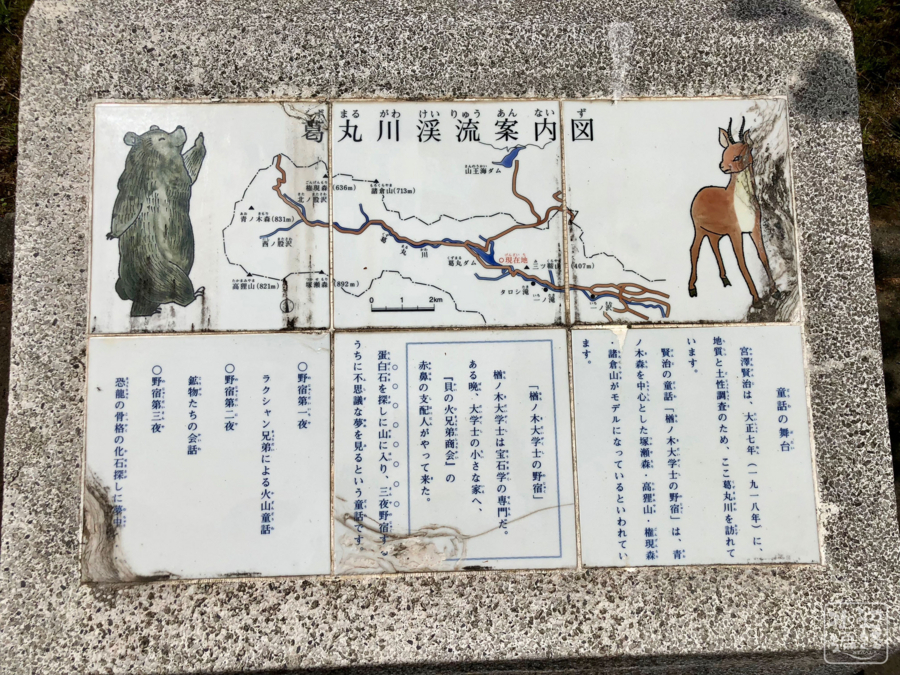 葛丸川渓流案内図
まる がわ けい りゅう あん ない ず
山王海ダム
権現森(636m)
諸倉山(713m)
北ノ股沢
青ノ木森(831m)
西ノ股沢
高狸山(821m)
塚瀬森(892m)
葛丸川
葛丸ダム
現在地
三ツ鞍山(407m)
タロシ滝
一ノ滝
一ノ沢
0 1 2km
童話の舞台
宮澤賢治は、大正七年(一九一八年)に、
地質と土性調査のため、ここ葛丸川を訪れて
います。
賢治の童話「楢ノ木大学士の野宿」は、青
ノ木森を中心とした塚瀬森・高狸山・権現森
・諸倉山がモデルになっているといわれてい
ます。
「楢ノ木大学士の野宿」
楢ノ木大学士は宝石学の専門だ。
ある晩、大学士の小さな家へ、
『貝の火兄弟商会』の
赤鼻の支配人がやって来た。
○ ○ ○ ○ ○ ○ ○ ○
蛋白石を探しに山に入り、三夜野宿す
うちに不思議な夢を見るという童話です
○野宿第一夜
ラクシャン兄弟による火山童話
○野宿第二夜
鉱物たちの会話
○野宿第三夜
恐龍の骨格の化石探しに